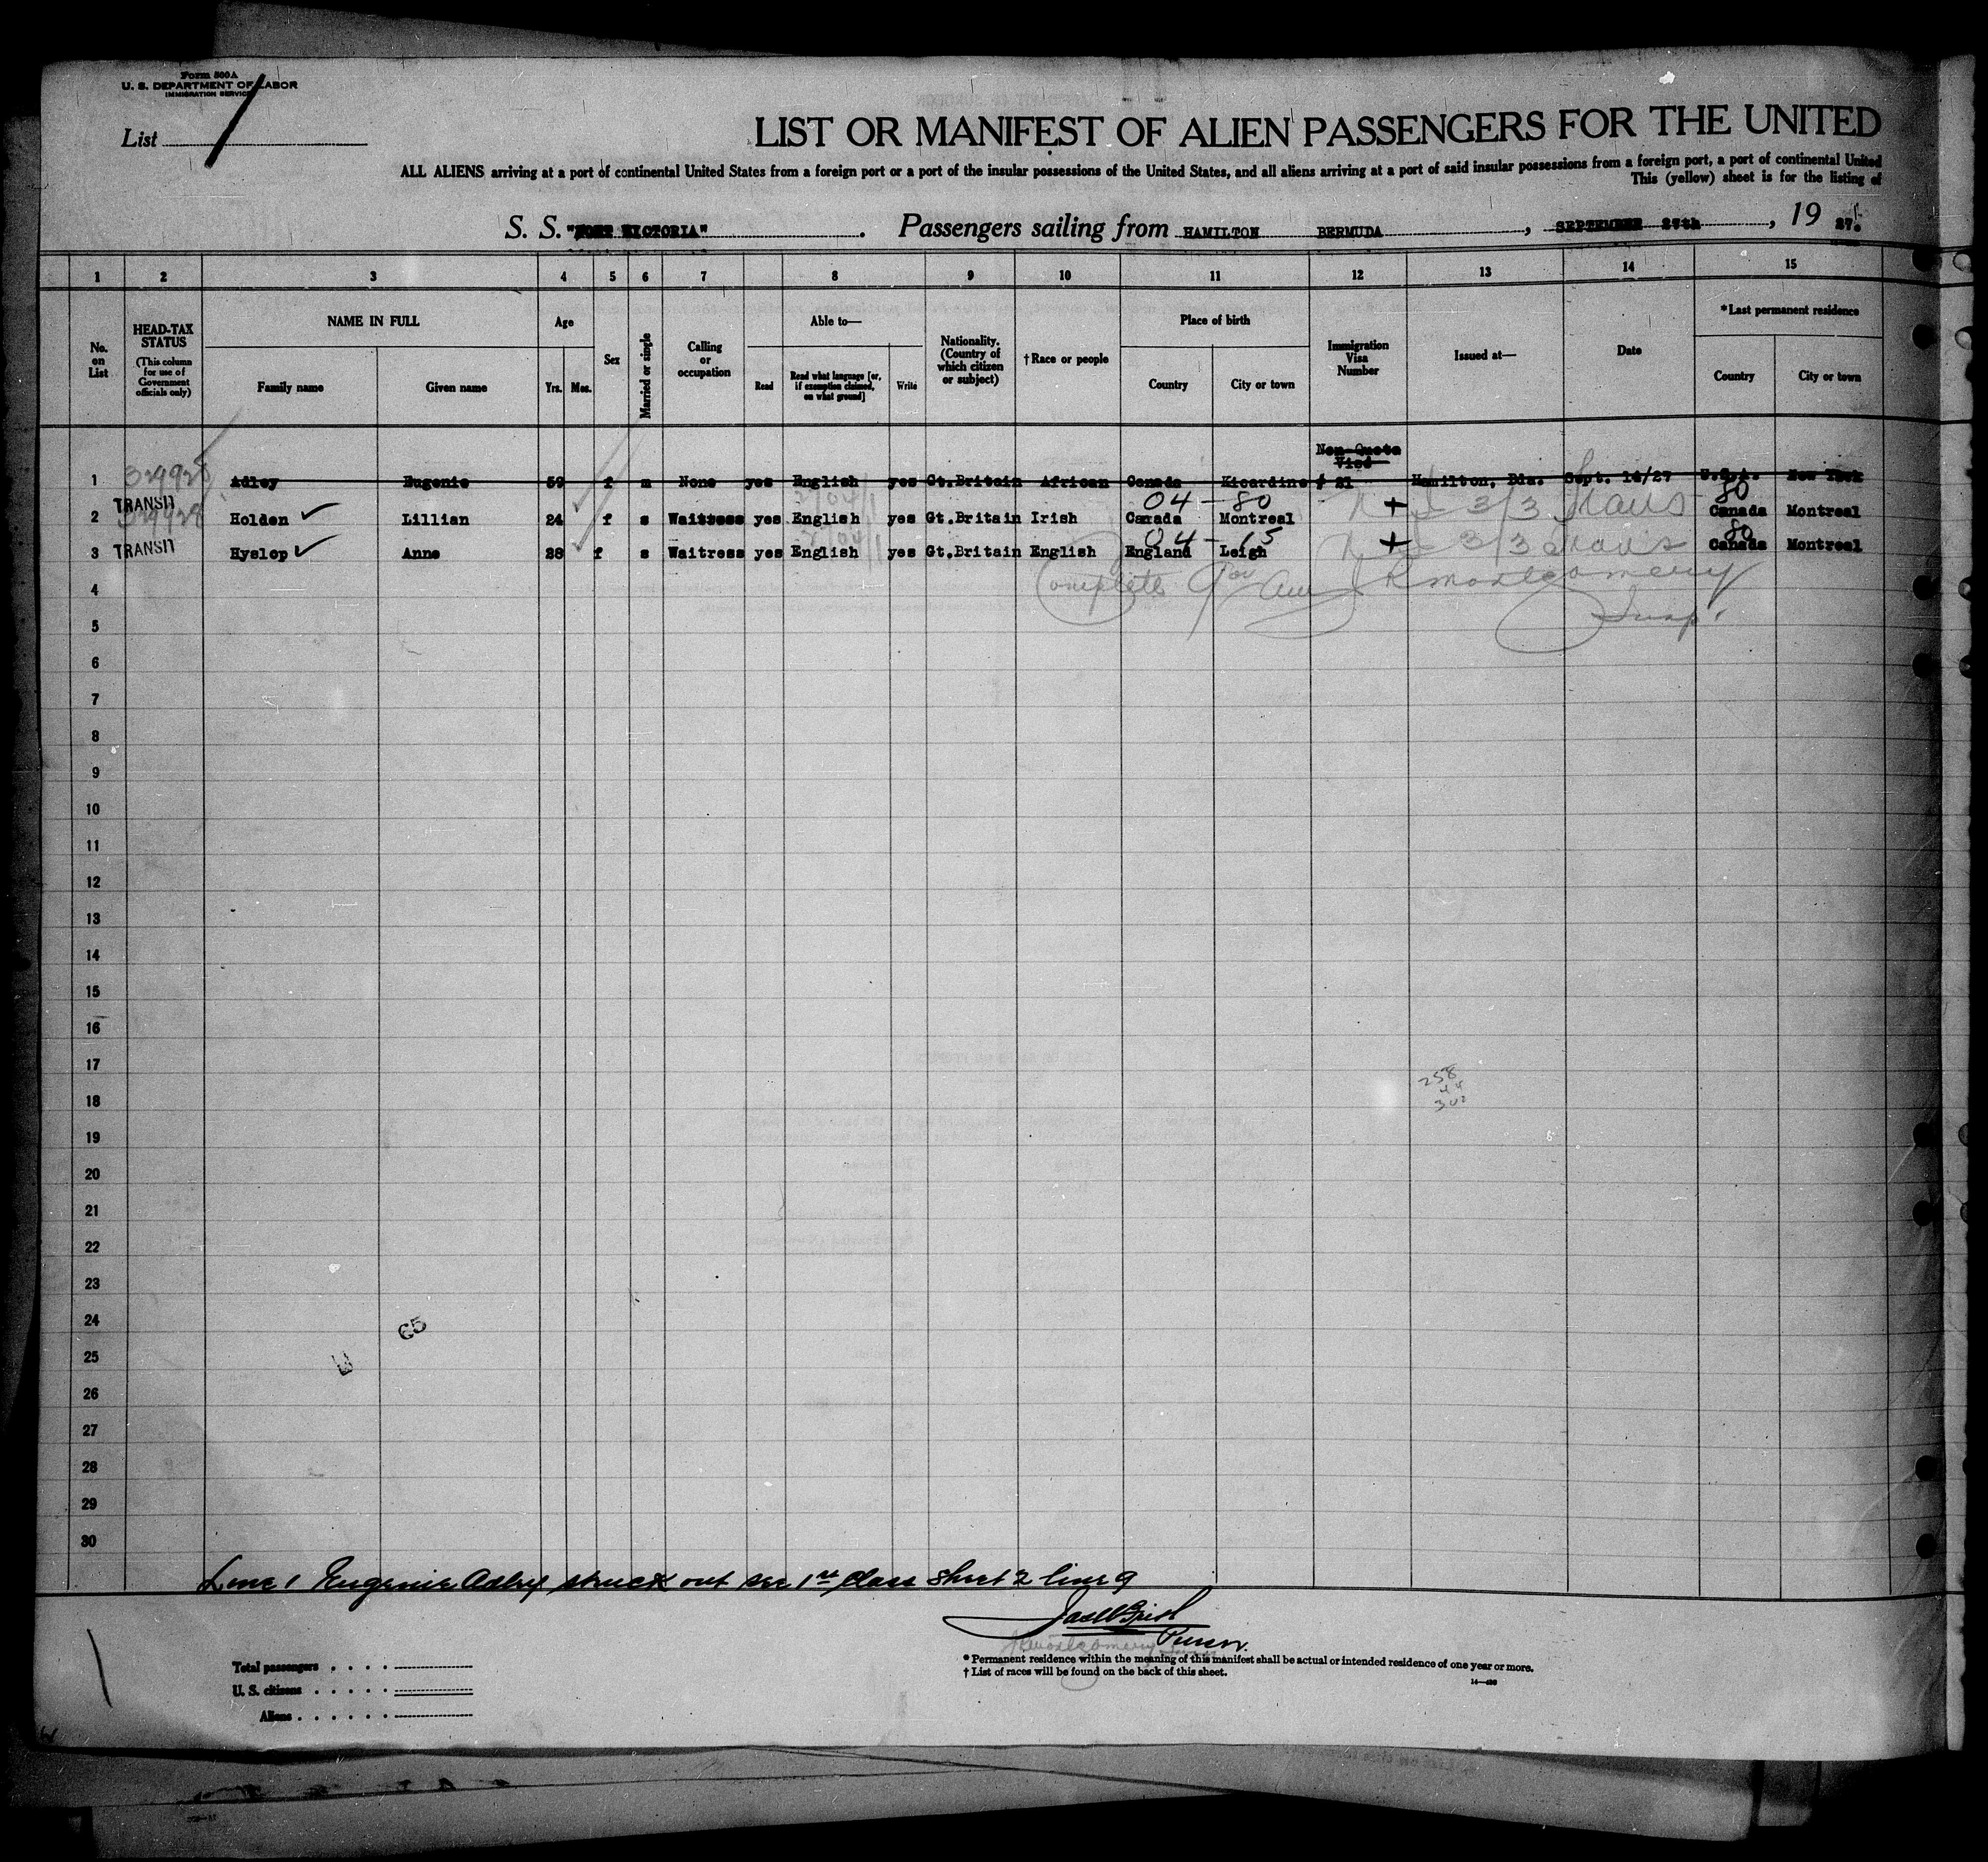 Form 500A
U. S. DEPARTMENT OF LABOR
IMMIGRATION SERVICE
List
LIST OR MANIFEST OF ALIEN PASSENGERS FOR THE UNITED
ALL ALIENS arriving at a port of continental United States from a foreign port or a port of the insular possessions of the United States, and all aliens arriving at a port of said insular possessions from a foreign port, a port of continental United
This (yellow) sheet is for the listing of
S. S. "FORT VICTORIA". Passengers sailing from HAMILTON BERMUDA, SEPTEMBER 27th, 19 27.
1 2 3 4 5 6 7 8 9 10 11 12 13 14 15
No. on List
HEAD-TAX STATUS (This column for use of Government officials only)
NAME IN FULL Family name Given name
Age Yrs. Mos.
Sex
Married or single
Calling or occupation
Able to— Read Read what language [or, if exemption claimed, on what ground] Write
Nationality. (Country of which citizen or subject)
†Race or people
Place of birth Country City or town
Immigration Visa Number
Issued at—
Date
*Last permanent residence Country City or town
Non-Quota
Visa
1 Adley Eugenie 59 f m None yes English yes Gt.Britain African Canada Kicardine # 21 Hamilton, Bda. Sept. 14/27 U.S.A. New York
04 - 80 80
2 TRANSIT Holden Lillian 24 f s Waitress yes English yes Gt.Britain Irish Canada Montreal 3/3 Canada Montreal
04 - 15 80
3 TRANSIT Hyslop Anne 28 f s Waitress yes English yes Gt.Britain English England Leigh 3/3 Canada Montreal
4 Complete Montgomery
5 Insp.
6
7
8
9
10
11
12
13
14
15
16
17 258
18 44
302
19
20
21
22
23
24 65
25
26
27
28
29
30
Line 1 Eugenie Adley struck out see 1st class sheet 2 line 9
Purser.
Total passengers
U. S. citizens
Aliens
* Permanent residence within the meaning of this manifest shall be actual or intended residence of one year or more.
† List of races will be found on the back of this sheet.